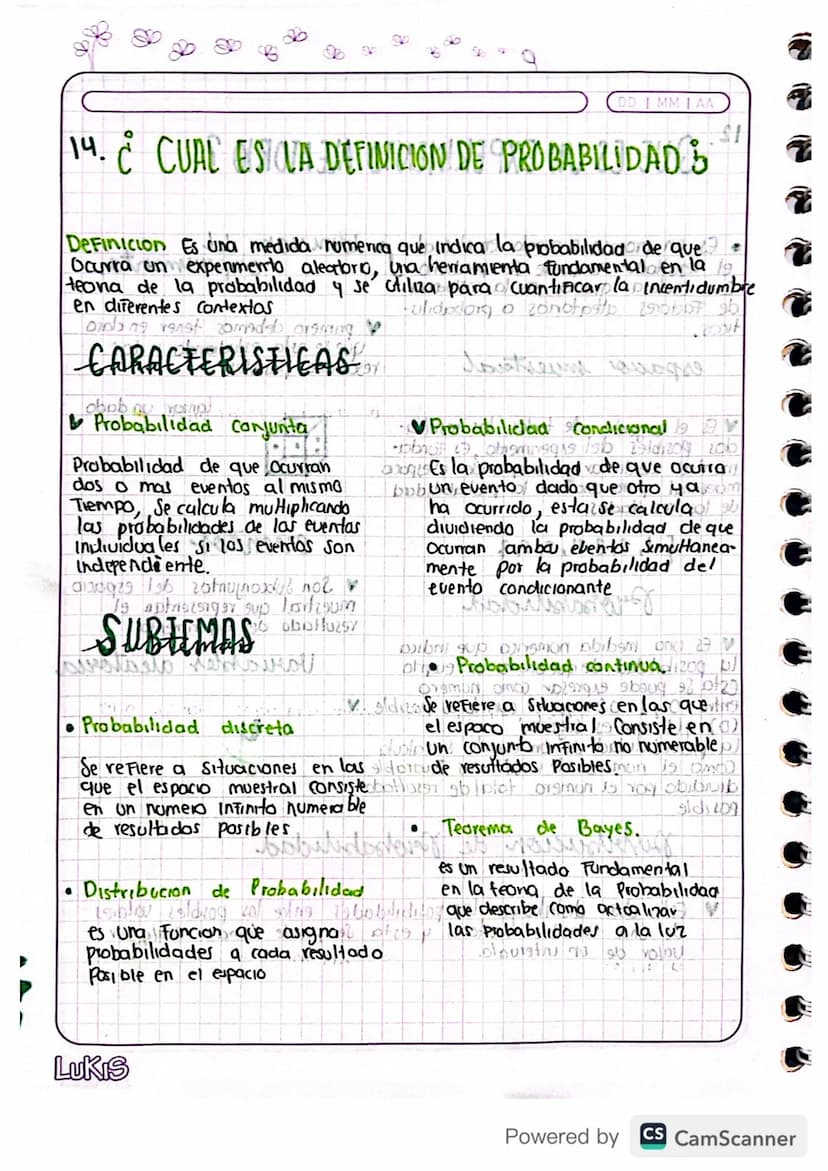 DD | MM | AA
14. ¿ CUAL ES LA DEFINICION DE PROBABILIDAD?
Definicion Es una medida numerica que indica la probabilidad de que
Ocurra un experimento aleatorio, Una herramienta fundamental en la
teoria de la probabilidad y se utiliza para cuantificar la incentidumbre
en diferentes contextos
CARACTERISTICAS
Probabilidad Conjunta
Probabilidad de que ocurran
dos o mas eventos al mismo
Tiempo, Se calcula multiplicando
las probabilidades de los eventos
Individuales si los eventos son
Independiente.
Probabilidad Condicional
Es la probabilidad de que ocurra
Un evento dado que otro ya
ha ocurrido, esta se calcula
dividiendo la probabilidad de que
ocurran ambos ebentos simultanea-
mente por la probabilidad del
evento condicionante
SUBTEMAS
• Probabilidad discreta
Se refiere a situaciones en las
que el espacio muestral consiste
en un numero infinito numerable
de resultados posibles
• Distribucion de Probabilidad
es una Funcion que asigna
probabilidades a cada resultado
Posible en el espacio
• Probabilidad continua.
Se refiere a Situaciones en las que
el espaco muestral Consiste en
Un conjunto infinito no numerable
de resultados Posibles
• Teorema de Bayes.
es un resultado Fundamental
en la teoria de la Probabilidad
que describe como actualizar
las probabilidades a la luz
LUKIS
Powered by CS CamScanner